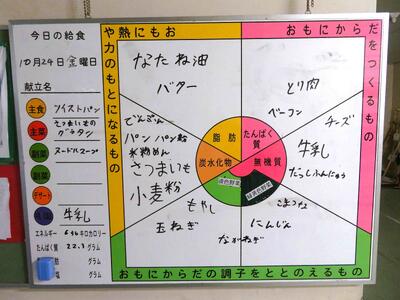 今日の給食
10月24日 金曜日
献立名
主食 ツイストパン
主菜 さつまいものグラタン
副菜 ヌードルスープ
副菜
デザート
牛乳
エネルギー キロカロリー
たんぱく質 22.3 グラム
グラム
グラム
おもに熱や力のもとになるもの
おもにからだをつくるもの
おもにからだの調子をととのえるもの
なたね油
バター
とり肉
ベーコン
チーズ
牛乳
だっしふんにゅう
でんぷん
パン パン粉
米粉めん
さつまいも
小麦粉
脂肪
たんぱく質
炭水化物
無機質
淡色野菜
緑黄色野菜
もやし
玉ねぎ
ながねぎ
にんじん
こまつな